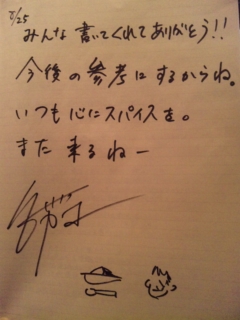 8/25
みんな書いてくれてありがとう!!
今後の参考にするからね。
いつも心にスパイスを。
また来るねー